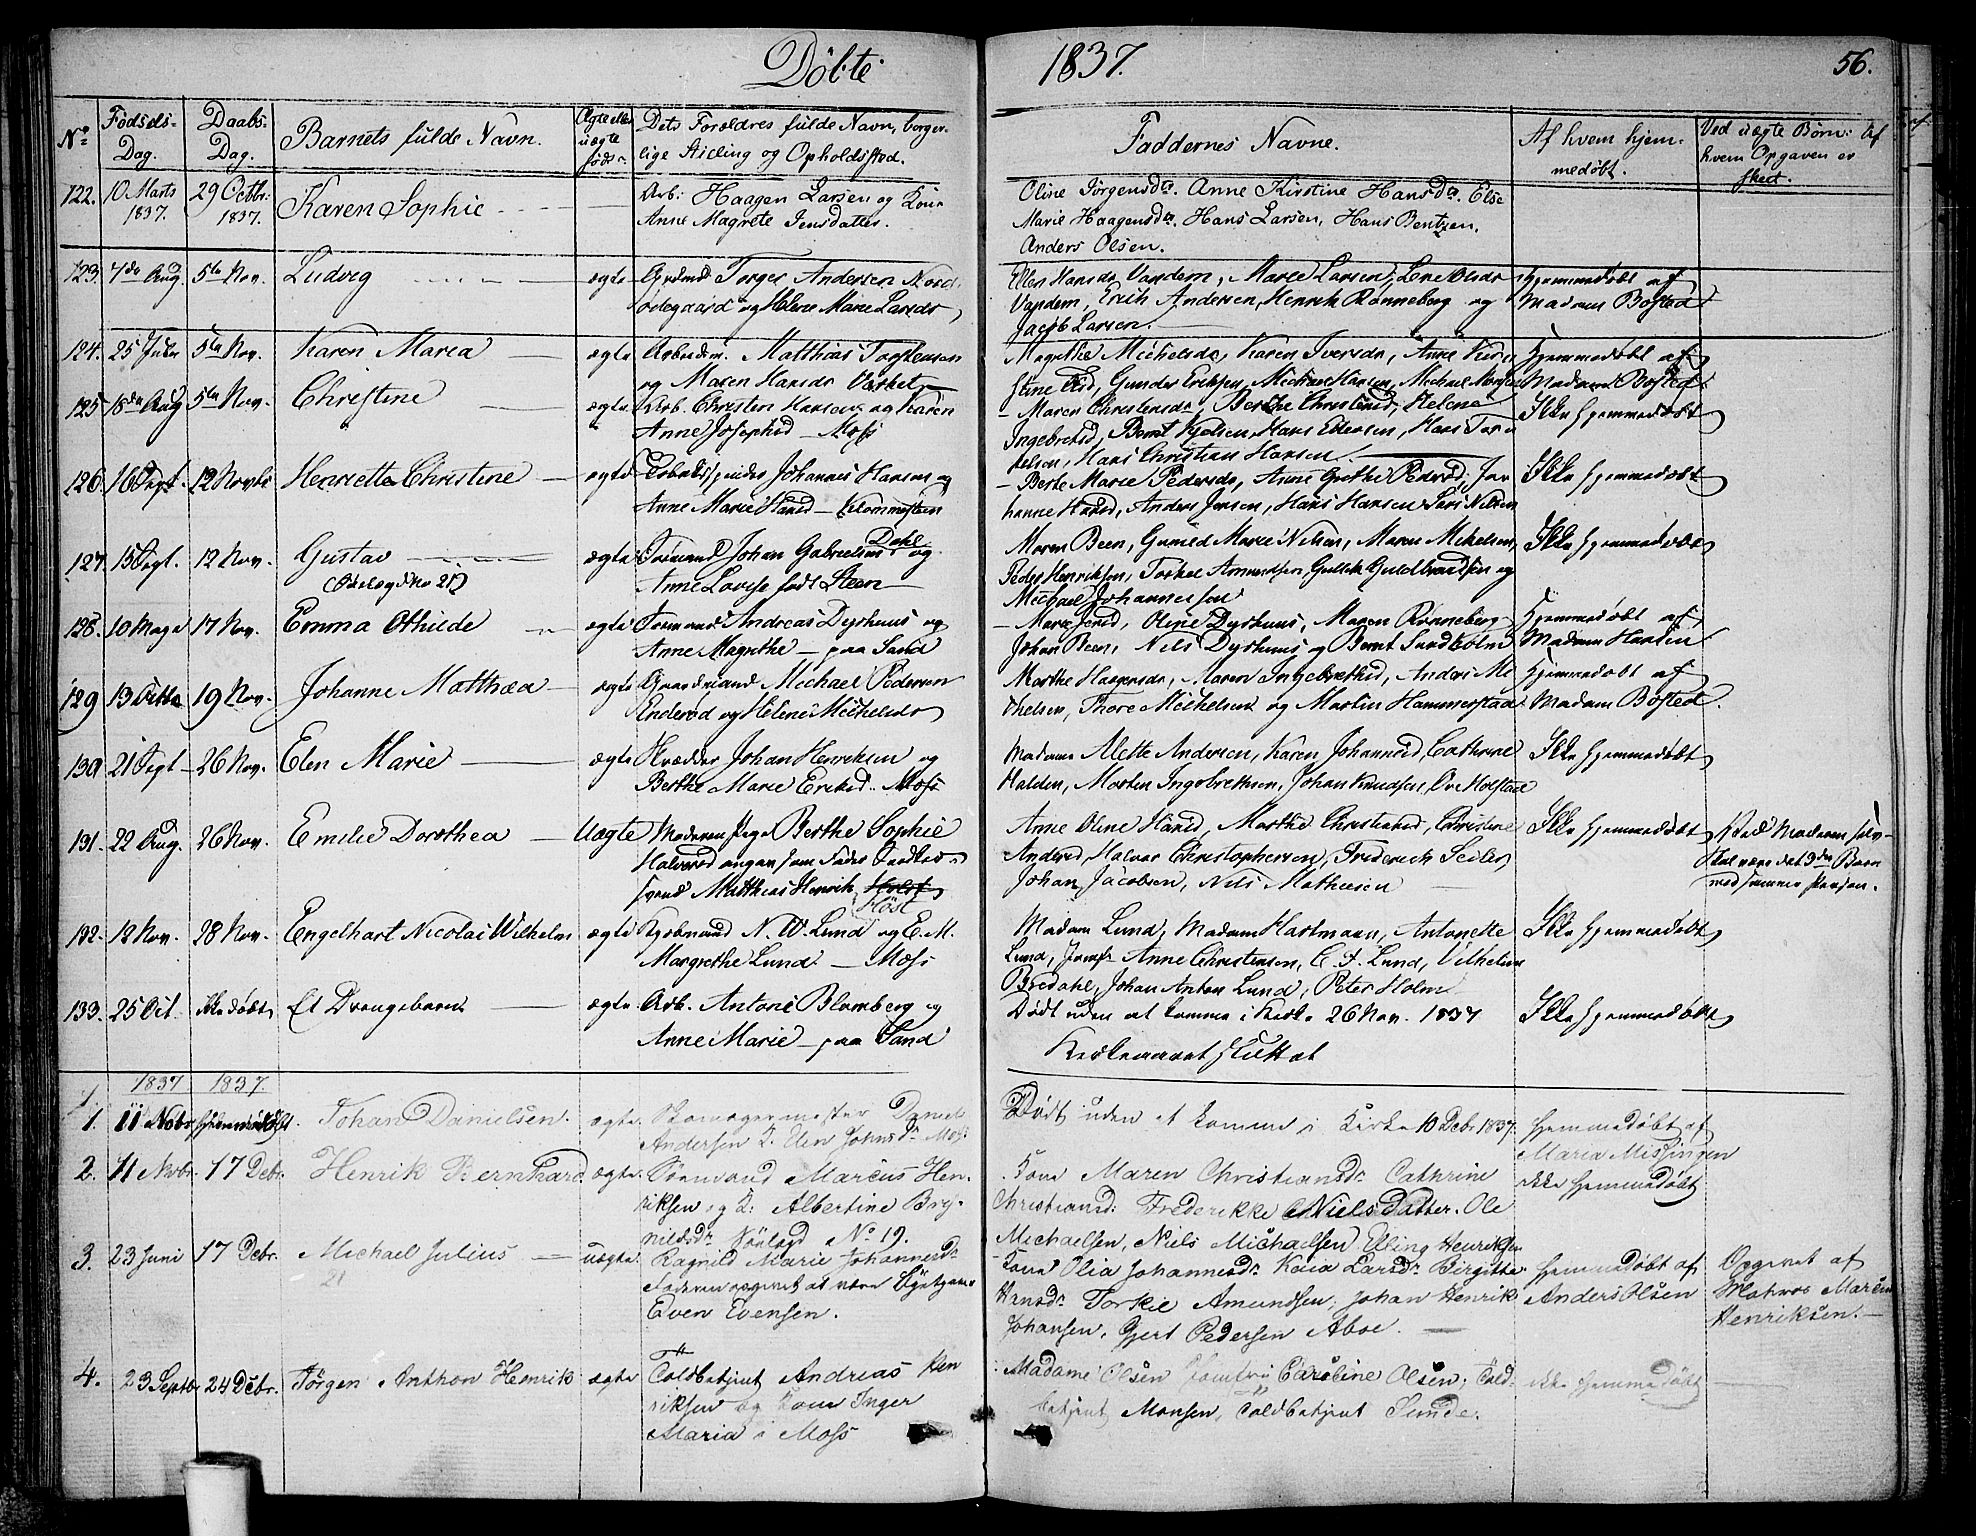 Döbte 1837. 56.
No Födsels-Dag. Daabs-Dag. Barnets fulde Navn. Ægte eller uægte föds. Dets Foroldres fulde Navn, borgerlige Stilling og Opholdssted. Faddernes Navne. Af hvem hjemmedøbt. Ved uægte Børn: Af hvem Opgaven er skeet.
122. 10 Marts 1837. 29 Octbr: 1837. Karen Sophie Arb: Haagen Larsen og Kone
Anne Magrete Jensdatter.
Oline Jörgensdr. Anne Kirstine Hansdr. Else
Marie Haagensdr. Hans Larsen, Hans Bentzen,
Anders Olsen.
123. 7de Aug. 5te Nov. Ludvig ægte Grdmd Torger Andersen Nord
ødegaard og Helene Marie Larsdr
Ellen Hansdr Vandem, Maree Larsen, Lene Olsdr
Vandem, Erich Andersen, Henrik Rønneberg og
Jacob Larsen.
Hjemmedøbt af
Madam Bosted
124. 25 5te Nov. Karen Maria ægte Arbeidsm. Matthias Torstensen
og Maren Hansdr
Magrethe Michelsdr, Karen Iversdr, Anne Kir
stine Gunder Eriksen, Michael Hansen, Michael
Hjemmedøbt af
Madam Bosted
125 18de Aug 5te Nov. Christine ægte Arb. Christen Hansen og Karen
Anne Josephsd — Moss
Maren Christensdr, Berthe Christensd, Helene
Ingebretsd, Bernt Kjelsen, Hans Edersen, Hans Tor
kelsen, Hans Christian Hansen
Ikke hjemmedøbt
126. 16 Sept. 12 Novbr Henriette Christine ægte Johannes Hansen og
Anne Marie Hansd —
Berthe Marie Pedersdr, Anne Grethe Pedersd, Jo
hanne Hansd, Anders Jensen, Hans Hansen Lars Nilsen
Ikke hjemmedøbt
127. 15 Sept. 12 Nov. Gustav ægte Johan Gabrielsen Dahl og
Anne Lovise født Steen
Maren Been, Gunild Marie Nilsen, Maren Mikelsen,
Peder Henriksen, Torkel Amundsen, Gullik Guldbrandsen og
Michael Johannesen
Ikke hjemmedøbt
128. 10 17 Nov. Emma Othilde ægte Andreas Dyrhuus og
Anne Magrethe — paa Sand
Oline Dyrhuus, Maren Rönneberg
Johan Been, Nils Dyrhuus og Bernt Sandholm
Hjemmedøbt af
Madam Hansen
129 13 19 Nov. Johanne Matthea ægte Gaardmand Michael Pedersen
Enderød og Helene Michelsdr
Marthe Haagensdr, Maren Ingebrethsd, Anders Mi
chelsen, Thore Mikkelsen og Martin Hammerstad
Hjemmedøbt af
Madam Bosted.
130 21 Sept 26 Nov. Elen Marie ægte Skrædder Johan Henriksen og
Berthe Marie Eriksd. Moss
Madame Mette Andersen, Karen Johannesd, Cathrine
Halden, Morten Ingebrethsen, Johan Knudsen, Ove Holstad
Ikke hjemmedøbt
131. 22 Aug. 26 Nov. Emilie Dorothea Uægte Moderen Pige Berthe Sophie
Halvorsd angav som Fader
svend Matthias Henrik Holst
Höst
Anne Oline Hansd, Marthe Christensd, Christine
Andersd, Halvor Christophersen, Frederich Seiler,
Johan Jacobsen, Nils Mathiesen
Ikke hjemmedøbt
Moderen selv
Skal være det 3die Barn
med samme Person.
132. 12 Nov. 28 Nov. Engelhart Nicolai Wilhelm ægte Kjøbmand N. W. Lund og E. M.
Margrethe Lund. — Moss
Madam Lund, Madam Hartmann, Antonette
Lund, Jomfr Anne Christensen, C. F. Lund, Vilhelm
Bredahl, Johan Anton Lund, Peter Holm
Ikke hjemmedøbt
133. 25 Oct. ikke døbt Et Drengebarn ægte Arb. Antoni Blomberg og
Anne Marie — paa Sand
Dødt uden at komme i Kirke 26 Nov. 1837
Ikke hjemmedøbt
Kirkeaaret sluttet
1837 1837.
1. 11 Novbr hjemmedøbt. Johan Danielsen. ægte Skomagermester Daniel
Andersen K. Elen Johnsdr Moss
Dödt uden at komme i Kirke 10 Debr 1837.
hjemmedøbt af
Maria Missingen
2. 11 Novbr. 17 Debr. Henrik Bernhard. ægte Sömand Marcus Hen
riksen og K: Albertine Bry
nildsdr Söelagd No 19.
Kone Maren Christiansdr Cathrine
Christiansd: Frederikke Nielsdatter. Ole
Michaelsen, Niels Michaelsen Elling Henriksen
ikke hjemmedöbt
3. 23 Juni 17 Debr. Michael Julius uægte Ragnild Marie Johannesdr
Faderen opgivet at være
Even Evensen.
21
Kone Olia Johannesdr Kaia Larsdr Birgitte
Hansdr Torkil Amundsen. Johan Henrik
Johansen, Gjert Pedersen Aboe.
hjemmedøbt af
Anders Olsen
Opgivet af
Matros Marcus
Henriksen.
4. 23 Septbr 24 Debr. Jörgen Anthon Henrik ægte Toldbetjent Andreas Hen
riksen og Kone Inger
Maria i Moss
Madame Olsen Jomfru Caroline Olsen, Told
betjent Monsen, Toldbetjent Sunde.
ikke hjemmedöbt